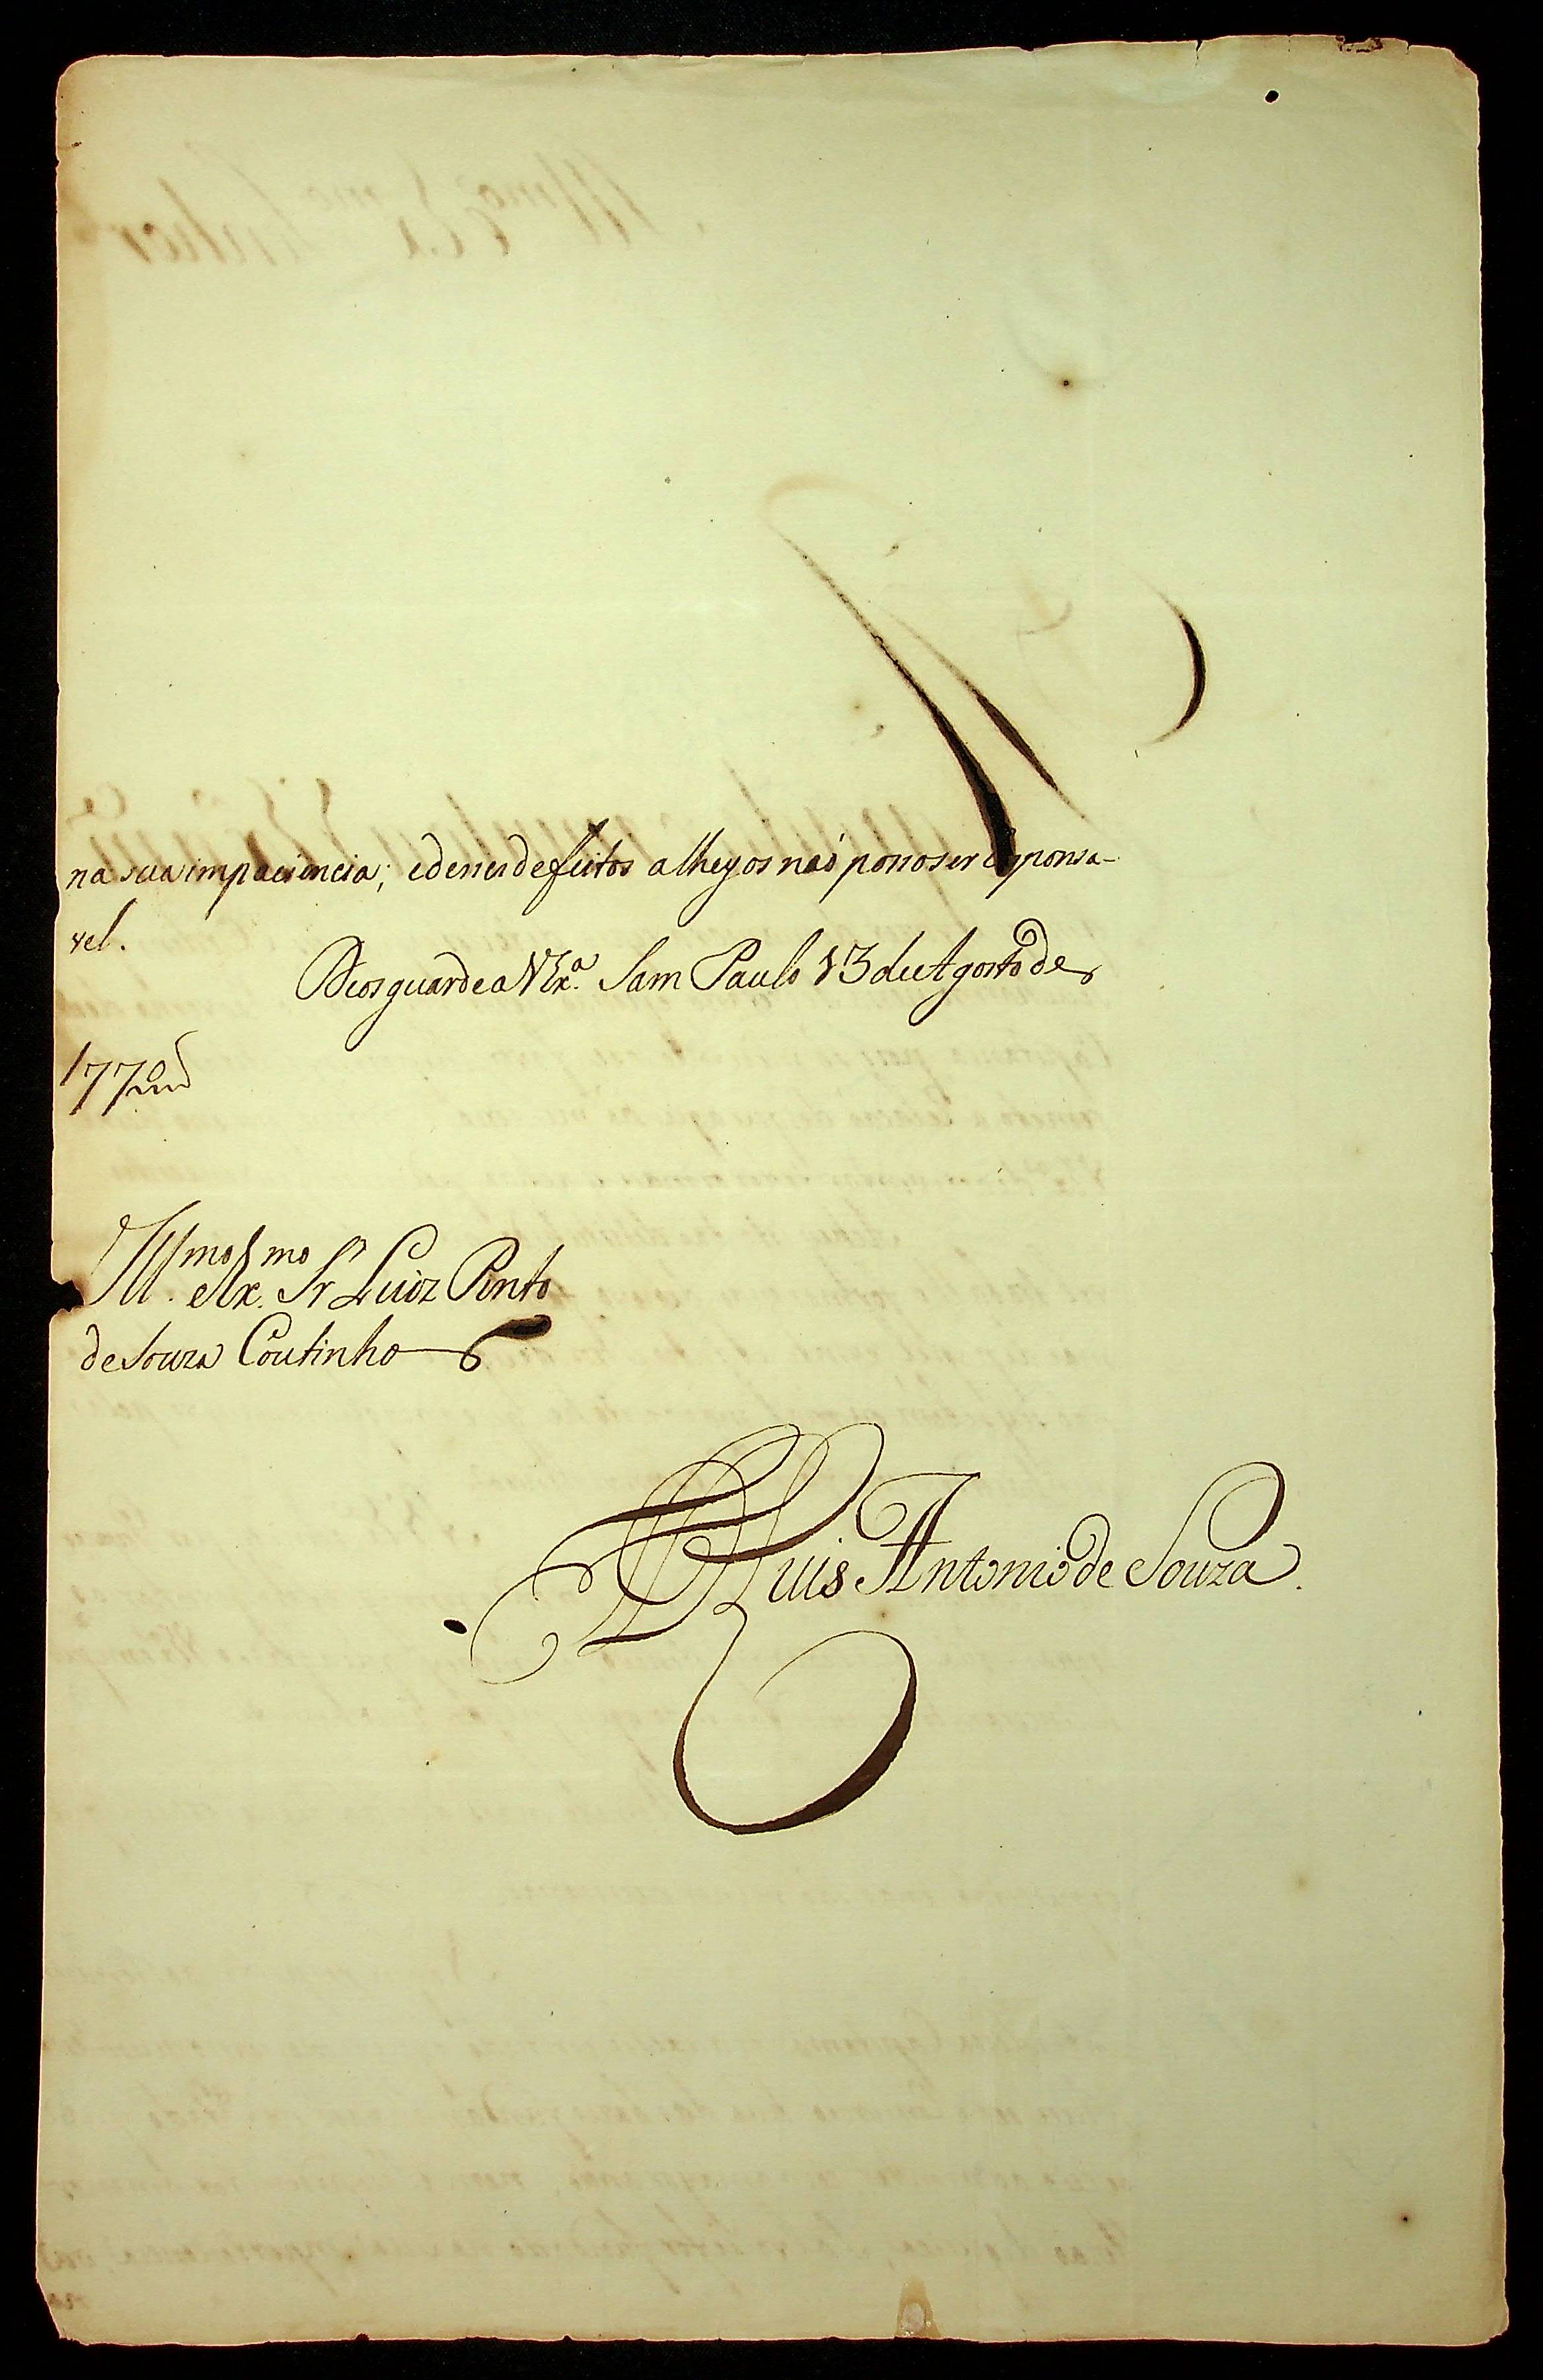 na sua impaciencia; e desses defeitos alheyos naõ posso ser responsa-
vel.
Deos guarde a V Ex.ª Sam Paulo 13 de Agosto de
1770
Ill.mo e Ex.mo Sr Luiz Pinto
de Souza Coutinho
D Luis Antonio de Souza.